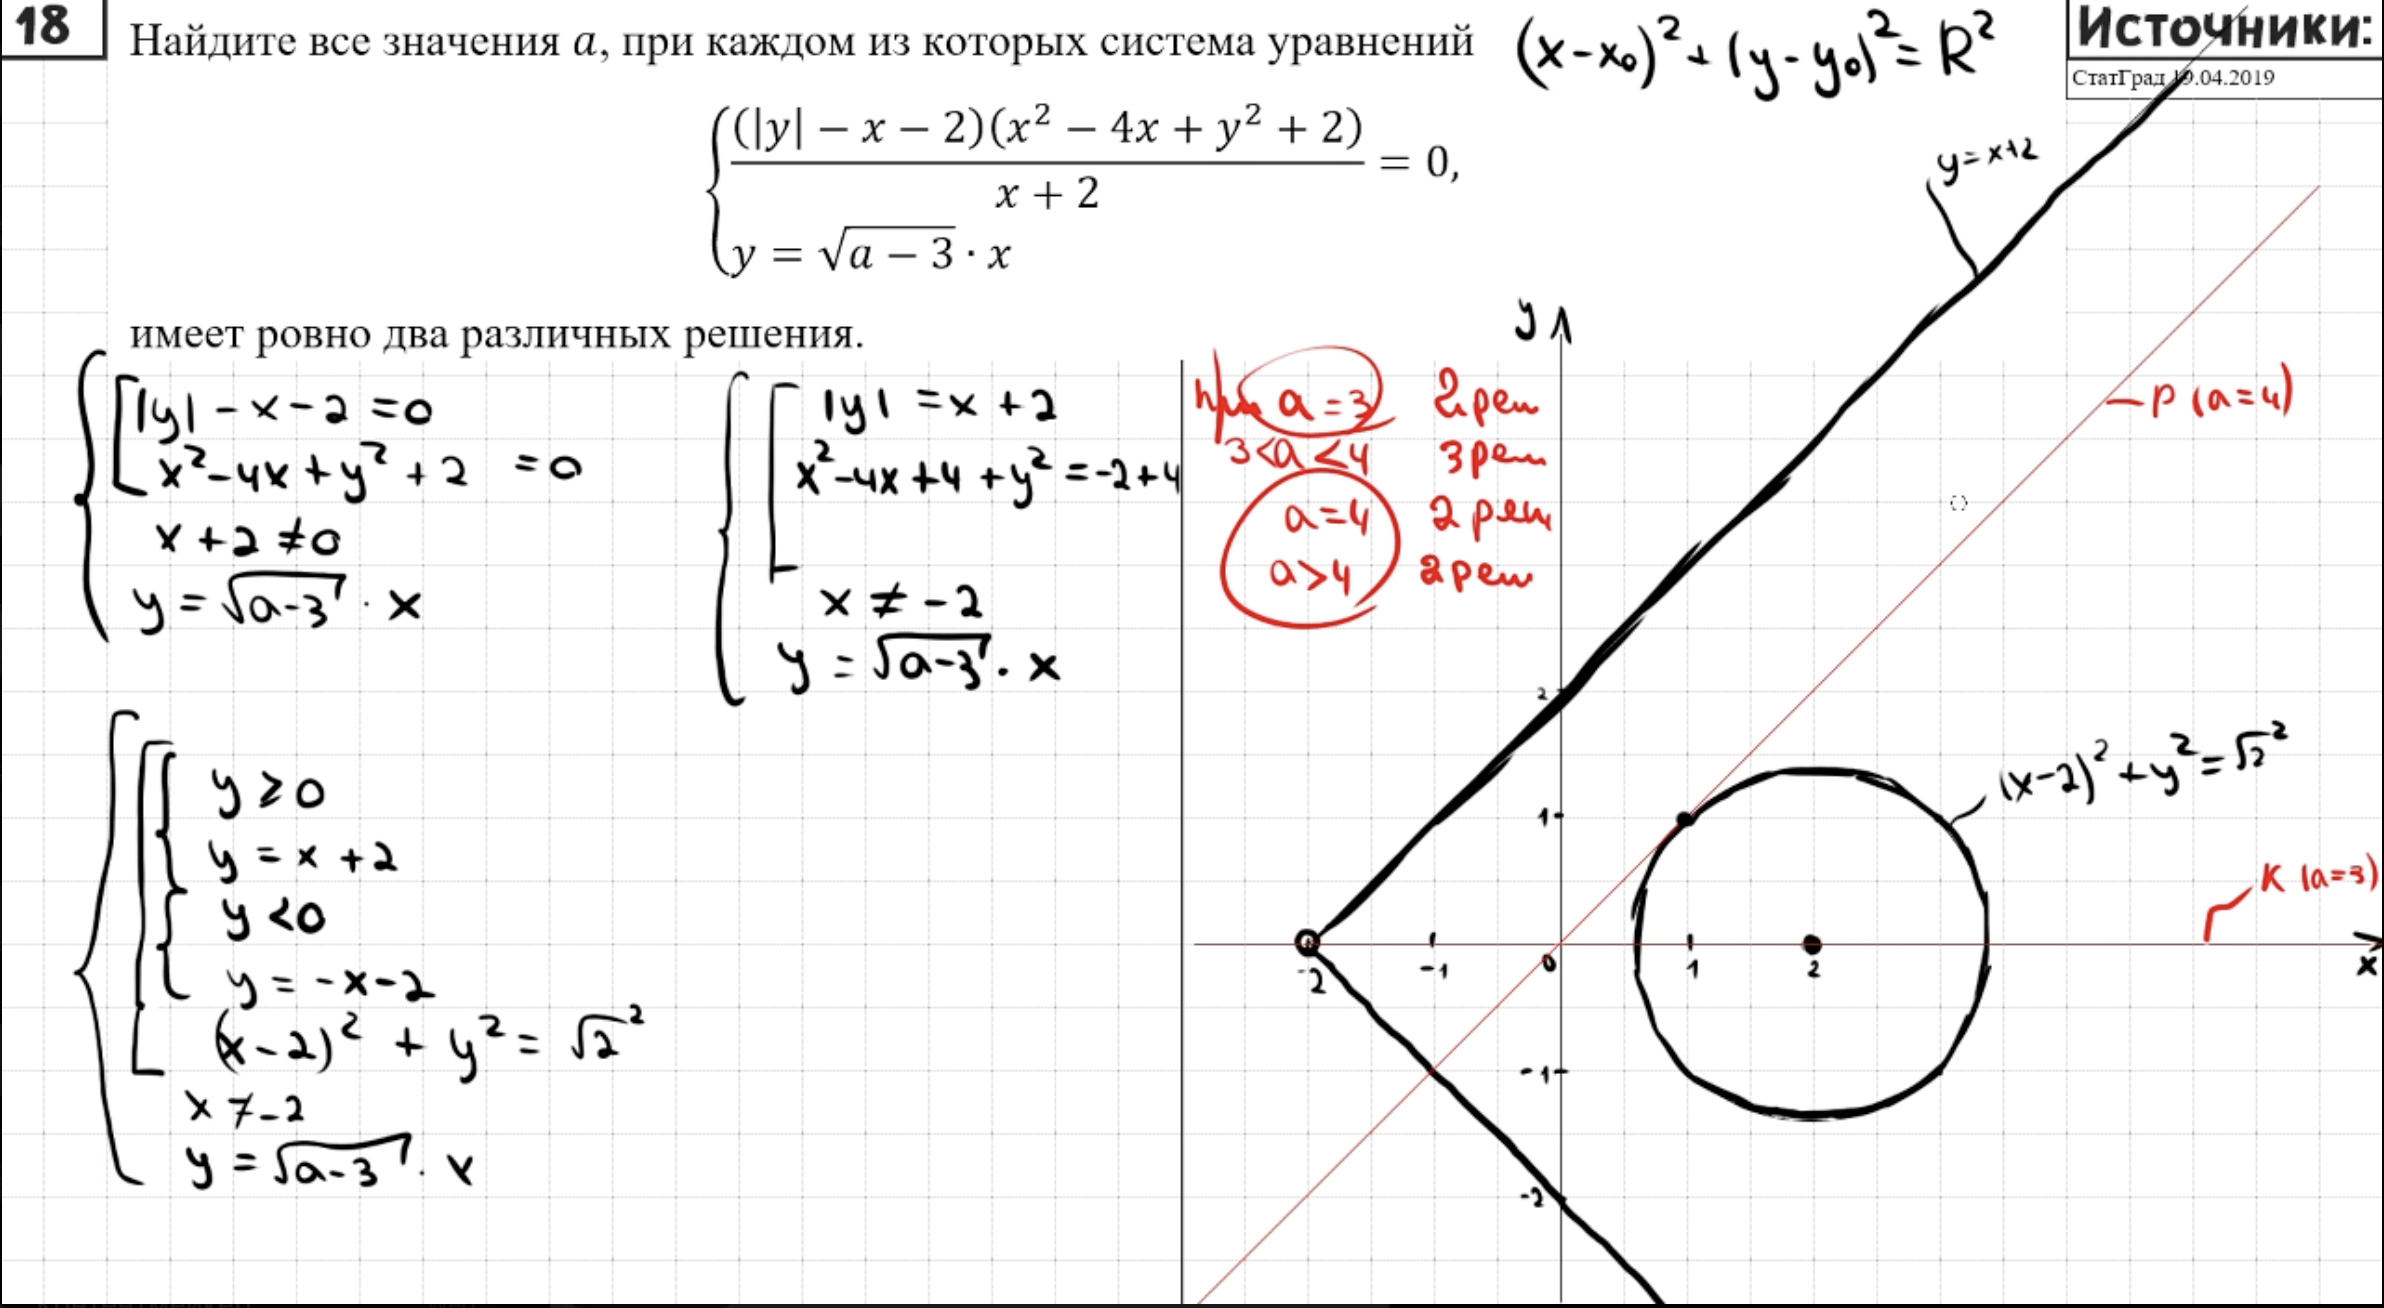 18
Найдите все значения a, при каждом из которых система уравнений
(x-x₀)² + (y-y₀)² = R²
Источники:
СтатГрад 19.04.2019
(|y| − x − 2)(x² − 4x + y² + 2)
x + 2
= 0,
y = √(a − 3) · x
имеет ровно два различных решения.
|y| - x - 2 = 0
x² - 4x + y² + 2 = 0
x + 2 ≠ 0
y = √(a-3) · x
|y| = x + 2
x² - 4x + 4 + y² = -2 + 4
x ≠ -2
y = √(a-3) · x
y ≥ 0
y = x + 2
y < 0
y = -x - 2
(x-2)² + y² = √2²
x ≠ -2
y = √(a-3) · x
при a = 3 2 реш
3 < a < 4 3 реш
a = 4 2 реш
a > 4 2 реш
y
y = x+2
P (a=4)
2
(x-2)² + y² = √2²
1
K (a=3)
-2 -1 0 1 2 x
-1
-2